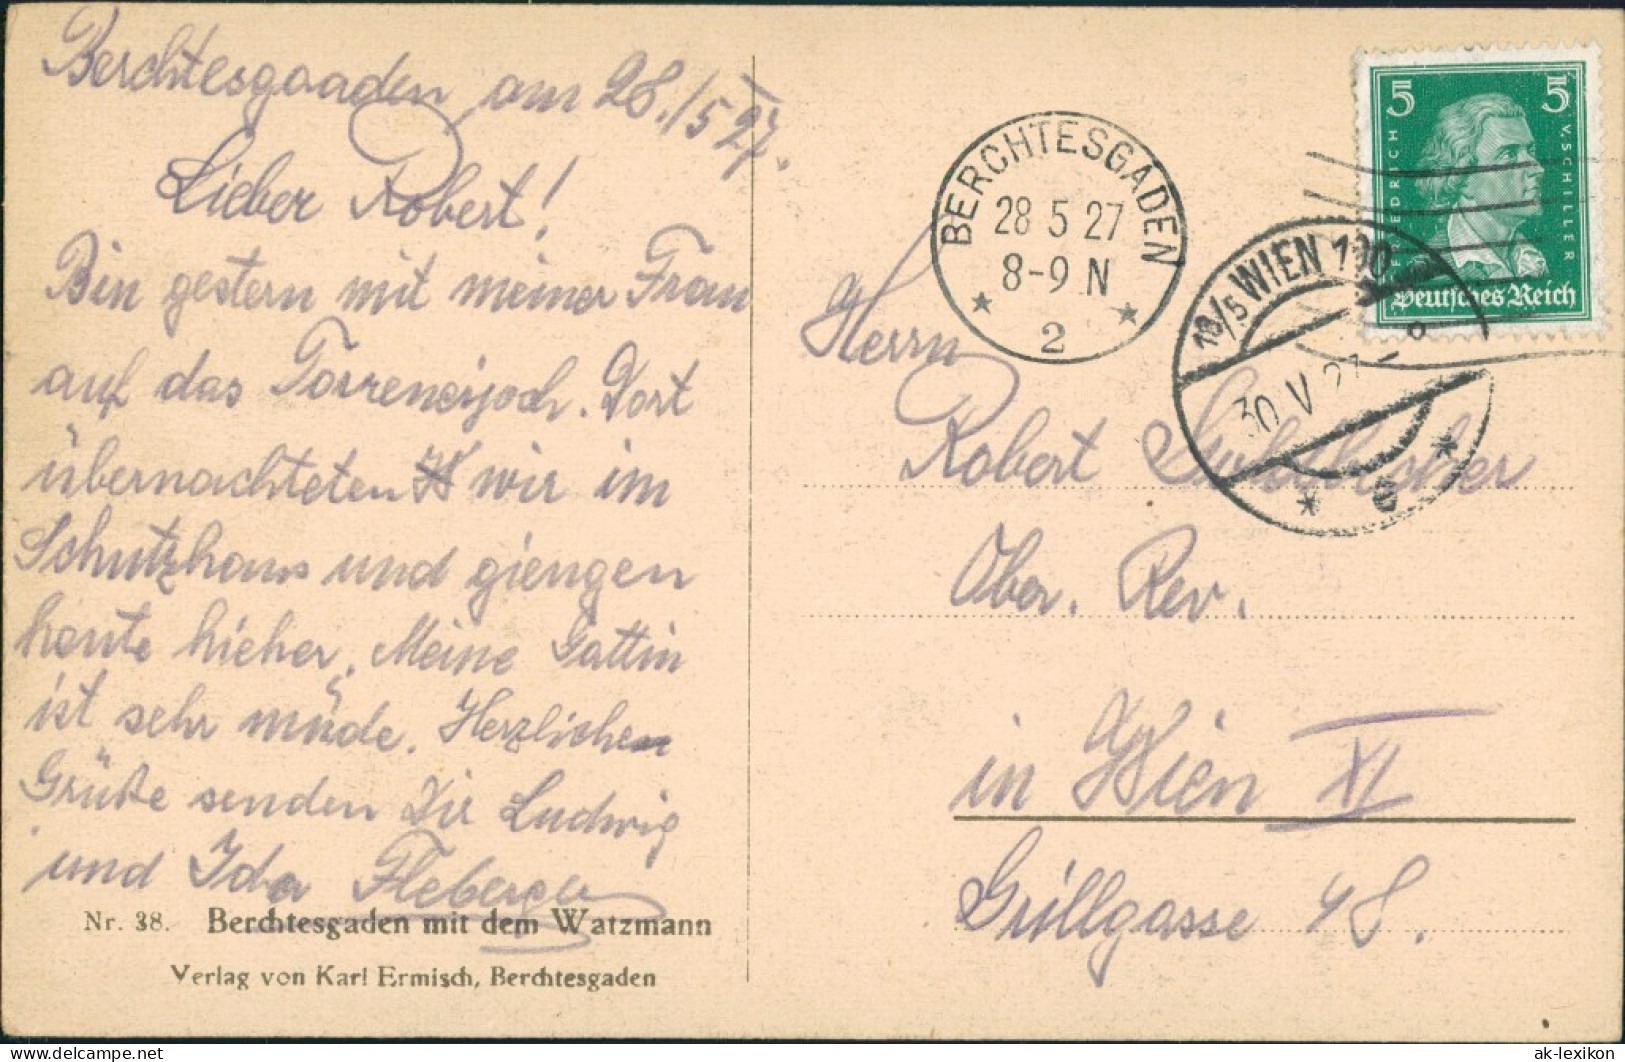 Berchtesgaaden am 28./5 27.
Lieber Robert!
Bin gestern mit meiner Frau
auf das Torrenerjoch. Dort
übernachteten wir im
Schutzhaus und giengen
heute hieher. Meine Gattin
ist sehr müde. Herzlichen
Grüße senden Dir Ludwig
und Ida
Nr. 38. Berchtesgaden mit dem Watzmann
Verlag von Karl Ermisch, Berchtesgaden
BERCHTESGADEN
28 5 27
8-9 N
2
18/5 WIEN 100
30 V 27
5 5
FRIEDRICH V. SCHILLER
Deutsches Reich
Herrn
Robert
Ober. Rev.
in Wien XI
Grillgasse 48.
www.delcampe.net
ak-lexikon